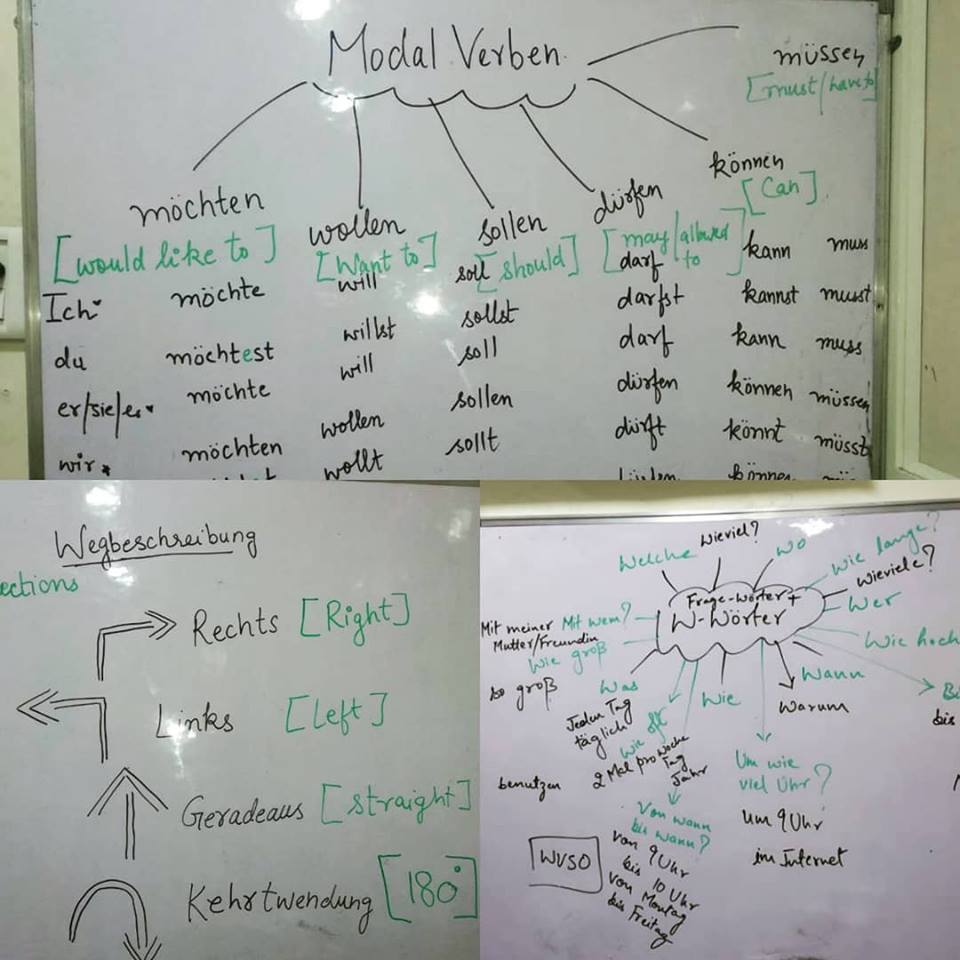 Modal Verben
müssen
[must/have to]
können
[Can]
möchten
[would like to]
wollen
[Want to]
sollen
[should]
dürfen
[may/allowed to]
Ich möchte will soll darf kann muss
du möchtest willst sollst darfst kannst musst
er/sie/es möchte will soll darf kann muss
wir möchten wollen sollen dürfen können müssen
wollt sollt dürft könnt müsst
Wegbeschreibung
ections
Rechts [Right]
Links [Left]
Geradeaus [straight]
Kehrtwendung [180°]
Frage-Wörter +
W-Wörter
Welche
Wieviel?
Wo
Wie lange?
Wieviele?
Wer
Wie hoch
Wann
Warum
bis
Mit meiner Mit wem?
Mutter/Freundin
Wie groß
so groß
Was
Jeden Tag
täglich
Wie oft
2 Mal pro Woche
Tag
Jahr
Wie
Um wie
viel Uhr?
um 9 Uhr
im Internet
benutzen
Von wann
bis wann?
von 9 Uhr
bis 10 Uhr
von Montag
bis Freitag
WVSO